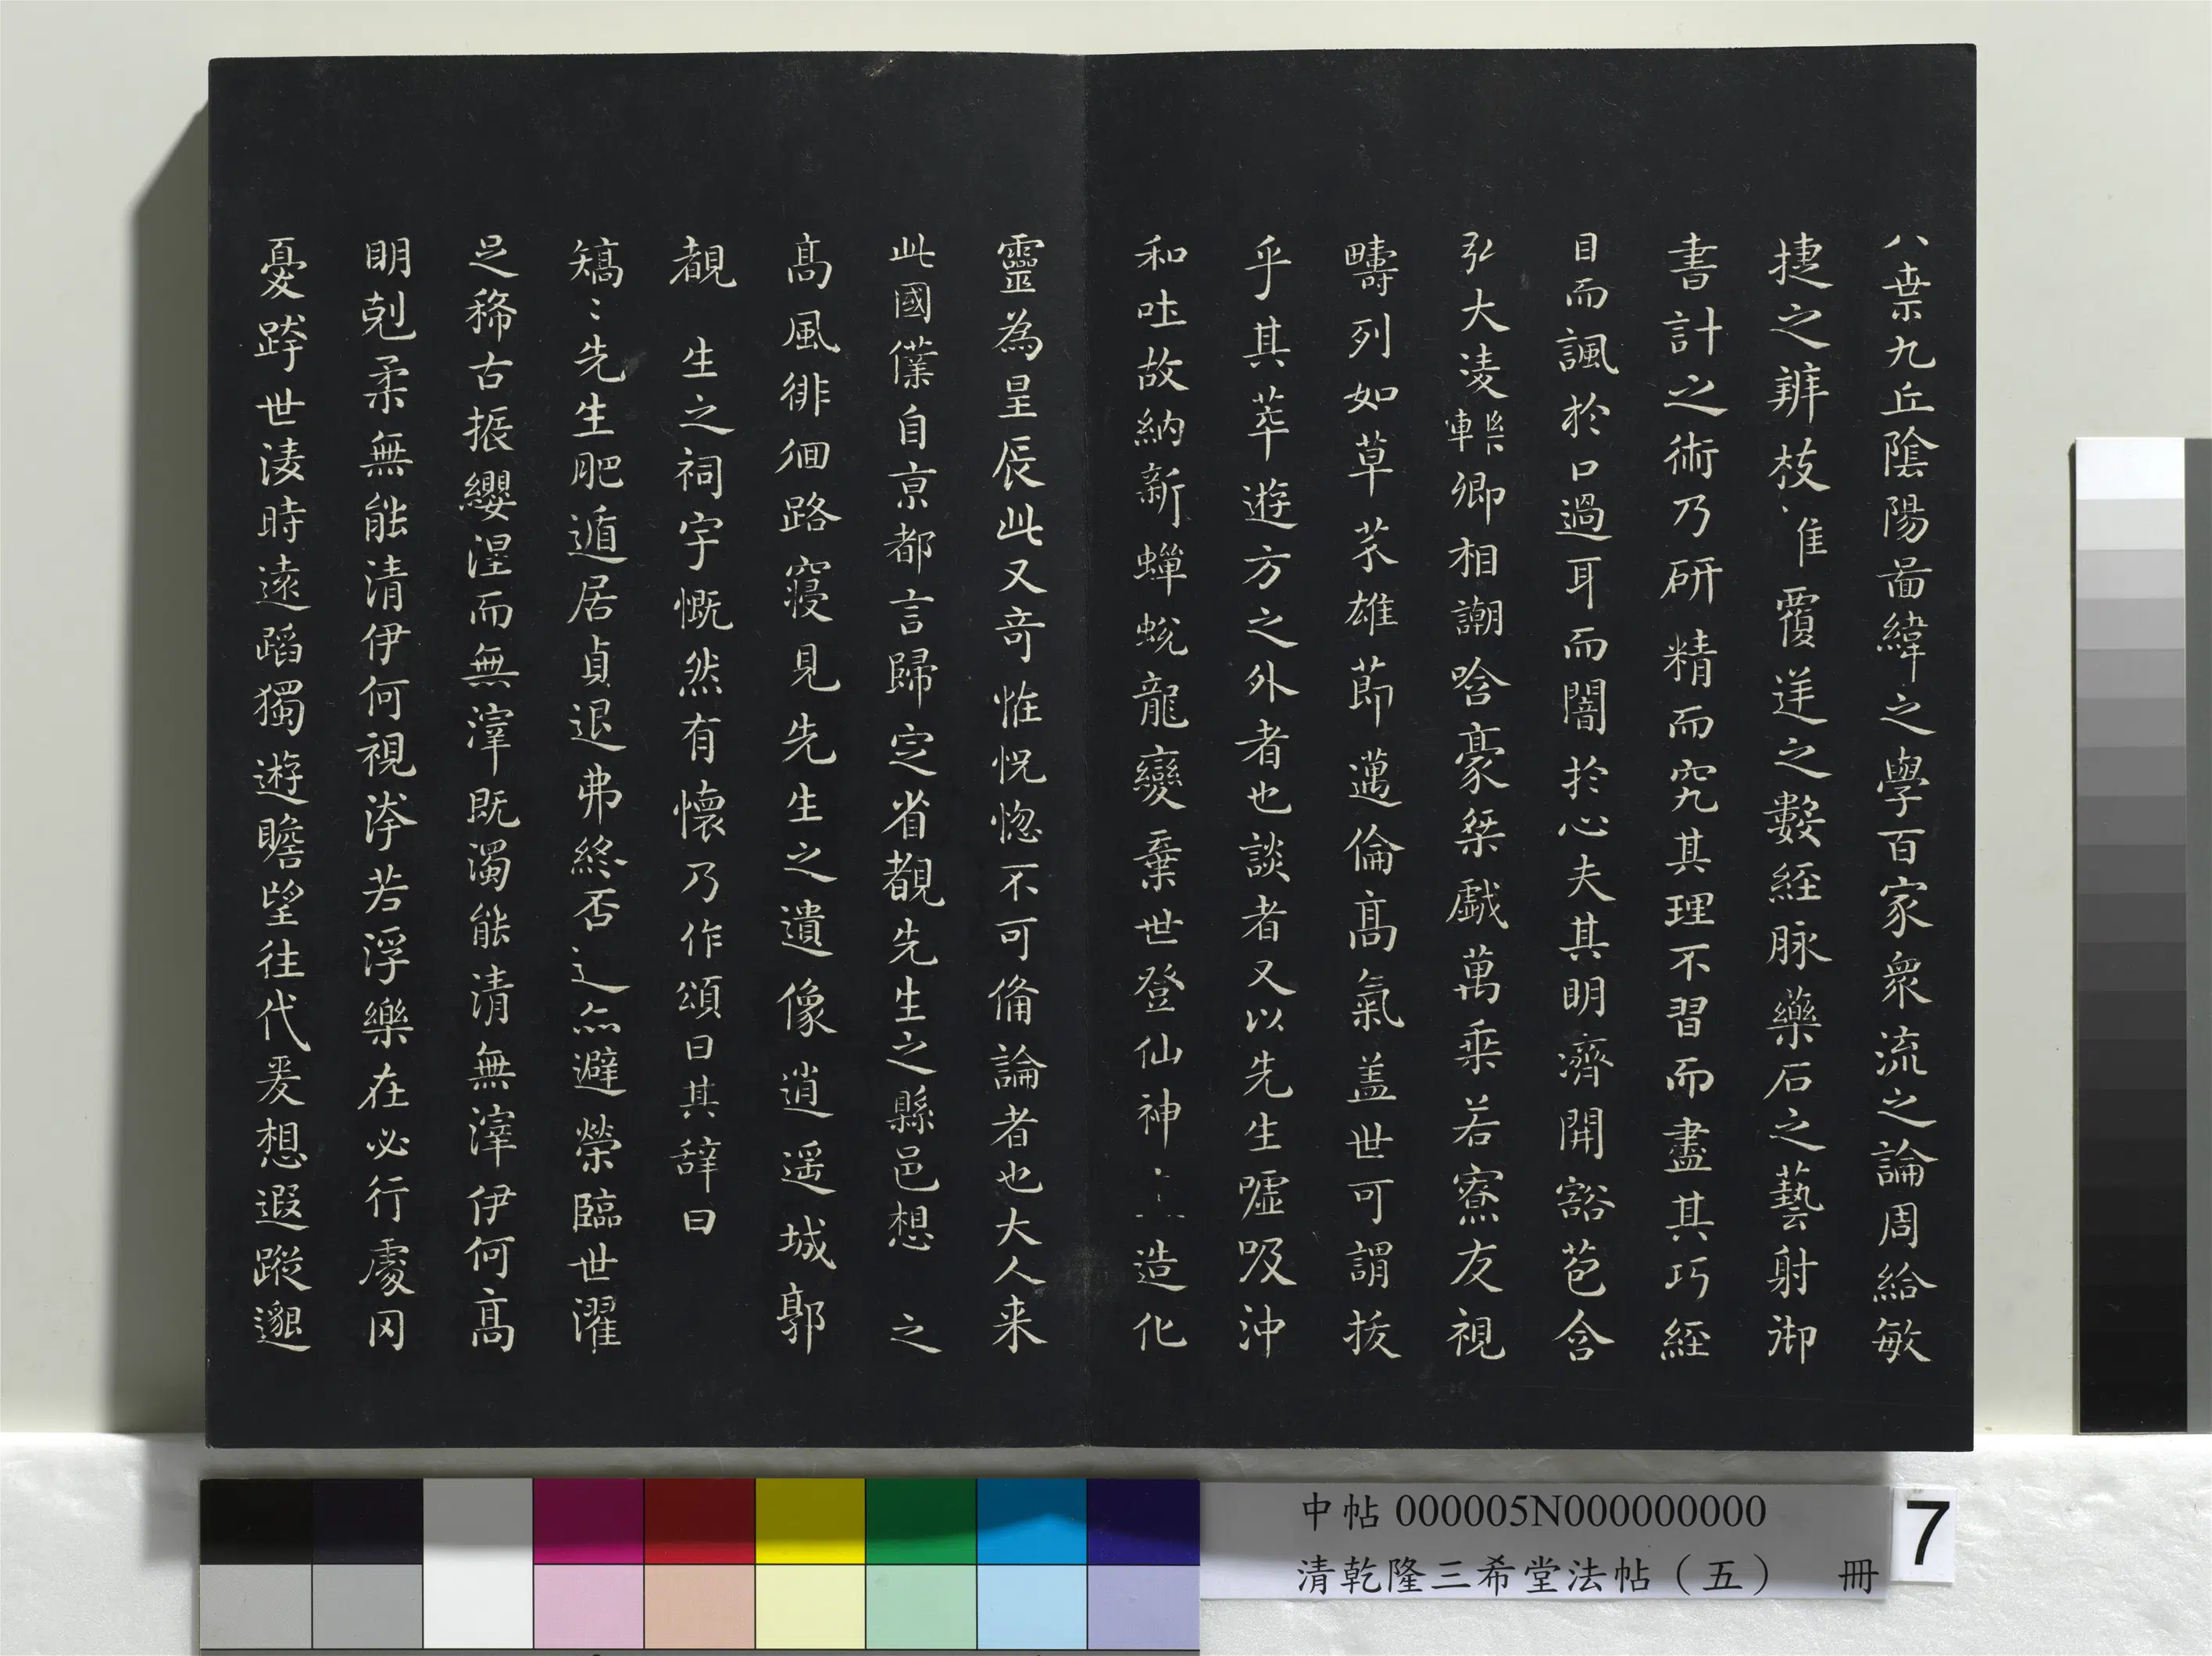 八索九丘陰陽啚緯之學百家衆流之論周給敏
捷之辨枝隹覆逆之數經脉藥石之藝射御
書計之術乃研精而究其理不習而盡其巧經
目而諷於口過耳而闇於心夫其明濟開豁苞含
弘大凌轢卿相謿哈豪桀戲萬乗若寮友視
疇列如草芥雄莭邁倫髙氣盖世可謂拔
乎其萃遊方之外者也談者又以先生噓吸沖
和吐故納新蟬蛻龍變棄世登仙神造化
靈為星辰此又竒恠怳惚不可俻論者也大人来
此國僕自京都言歸定省覩先生之縣邑想 之
髙風徘徊路寢見先生之遺像逍遥城郭
覩 生之祠宇慨然有懷乃作頌曰其辞曰
矯〻先生肥遁居貞退弗終否避榮臨世濯
足稀古振纓涅而無滓既濁能清無滓伊何髙
明剋柔無能清伊何視汙若浮樂在必行處冈
憂跨世淩時遠蹈獨遊瞻望往代爰想遐蹤邈
中帖 000005N000000000
清乾隆三希堂法帖（五） 冊
7